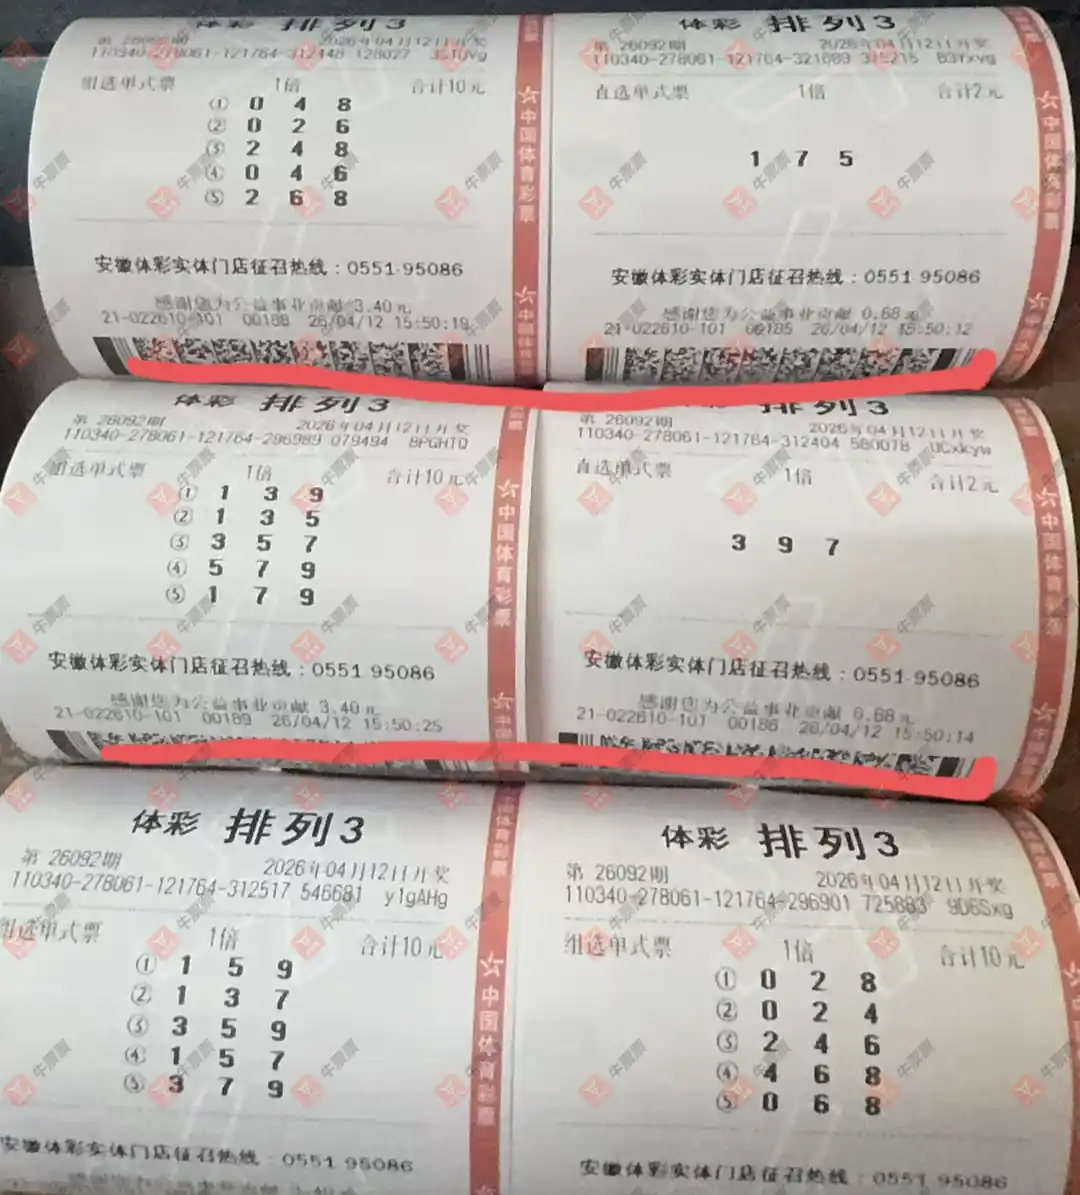 体彩 排列3
第 26092期 2026年04月12日开奖
110340-278061-121764-312448 128027
组选单式票 1倍 合计10元
① 0 4 8
② 0 2 6
③ 2 4 8
④ 0 4 6
⑤ 2 6 8
安徽体彩实体门店征召热线：0551-95086
感谢您为公益事业贡献 3.40元
21-022610-101 00188 26/04/12 15:50:19
中国体育彩票
体彩 排列3
第 26092期 2026年04月12日开奖
110340-278061-121764-321689 315215 B3Yxvg
直选单式票 1倍 合计2元
1 7 5
安徽体彩实体门店征召热线：0551-95086
感谢您为公益事业贡献 0.68元
21-022610-101 00185 26/04/12 15:50:12
中国体育彩票
体彩 排列3
第 26092期 2026年04月12日开奖
110340-278061-121764-296989 079494 8PGHTQ
组选单式票 1倍 合计10元
① 1 3 9
② 1 3 5
③ 3 5 7
④ 5 7 9
⑤ 1 7 9
安徽体彩实体门店征召热线：0551 95086
感谢您为公益事业贡献 3.40元
21-022610-101 00189 26/04/12 15:50:25
中国体育彩票
体彩 排列3
第 26092期 2026年04月12日开奖
110340-278061-121764-312404 580078 UCxkyw
直选单式票 1倍 合计2元
3 9 7
安徽体彩实体门店征召热线：0551-95086
感谢您为公益事业贡献 0.68元
21-022610-101 00186 26/04/12 15:50:14
中国体育彩票
体彩 排列3
第 26092期 2026年04月12日开奖
110340-278061-121764-312517 546681 y1gAHg
组选单式票 1倍 合计10元
① 1 5 9
② 1 3 7
③ 3 5 9
④ 1 5 7
⑤ 3 7 9
安徽体彩实体门店征召热线：0551 95086
中国体育彩票
体彩 排列3
第 26092期 2026年04月12日开奖
110340-278061-121764-296901 725883 9D6Sxg
组选单式票 1倍 合计10元
① 0 2 8
② 0 2 4
③ 2 4 6
④ 4 6 8
⑤ 0 6 8
安徽体彩实体门店征召热线：0551 95086
牛票票